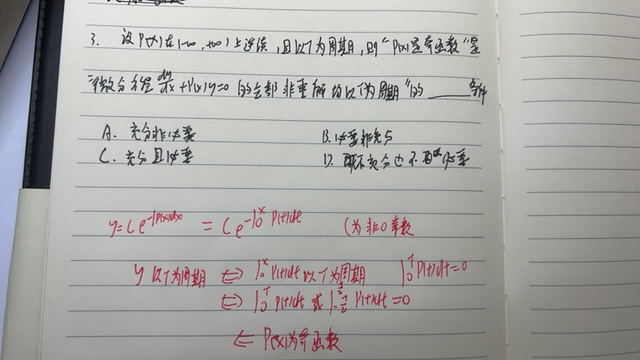 3. 设P(x)在(-∞, +∞)上连续,且以T为周期,则"P(x)是奇函数"是
"微分方程 dy/dx + P(x)y=0 的全部非零解均以T为周期"的____条件
A. 充分非必要 B. 必要非充分
C. 充分且必要 D. 既不充分也不必要
y=Ce^{-∫P(x)dx} = Ce^{-∫_0^x P(t)dt} C为非0常数
y以T为周期 ⇔ ∫_0^x P(t)dt以T为周期 ∫_0^T P(t)dt=0
⇔ ∫_0^T P(t)dt 或 ∫_{-T/2}^{T/2} P(t)dt=0
⇐ P(x)为奇函数